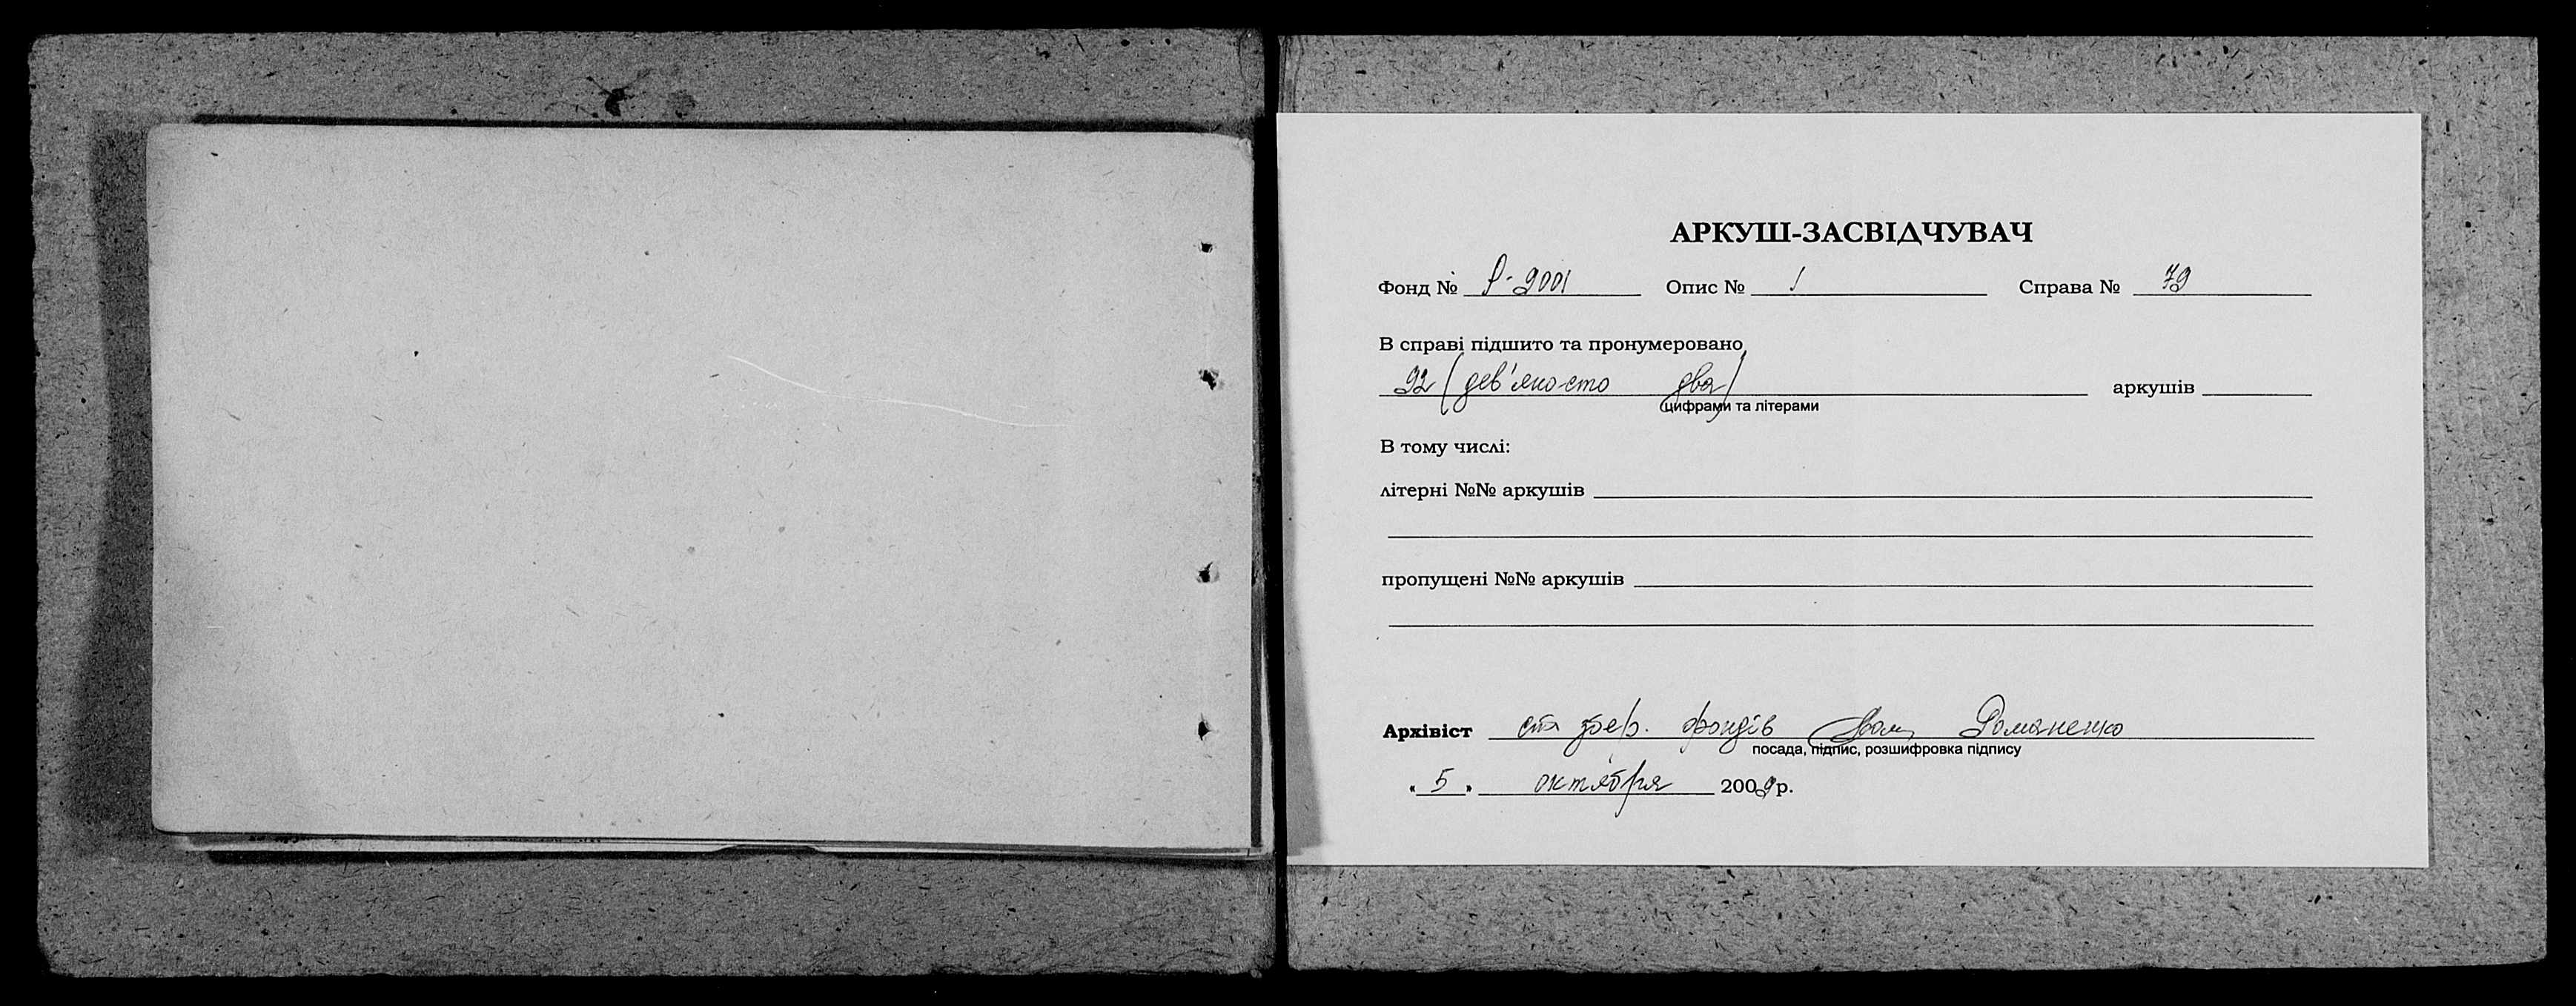 АРКУШ-ЗАСВІДЧУВАЧ
Фонд № Р-9001 Опис № 1 Справа № 79
В справі підшито та пронумеровано
92 (дев'яносто два) аркушів
цифрами та літерами
В тому числі:
літерні №№ аркушів
пропущені №№ аркушів
Архівіст ст. фондів Романенко
посада, підпис, розшифровка підпису
« 5 » октября 2009 р.